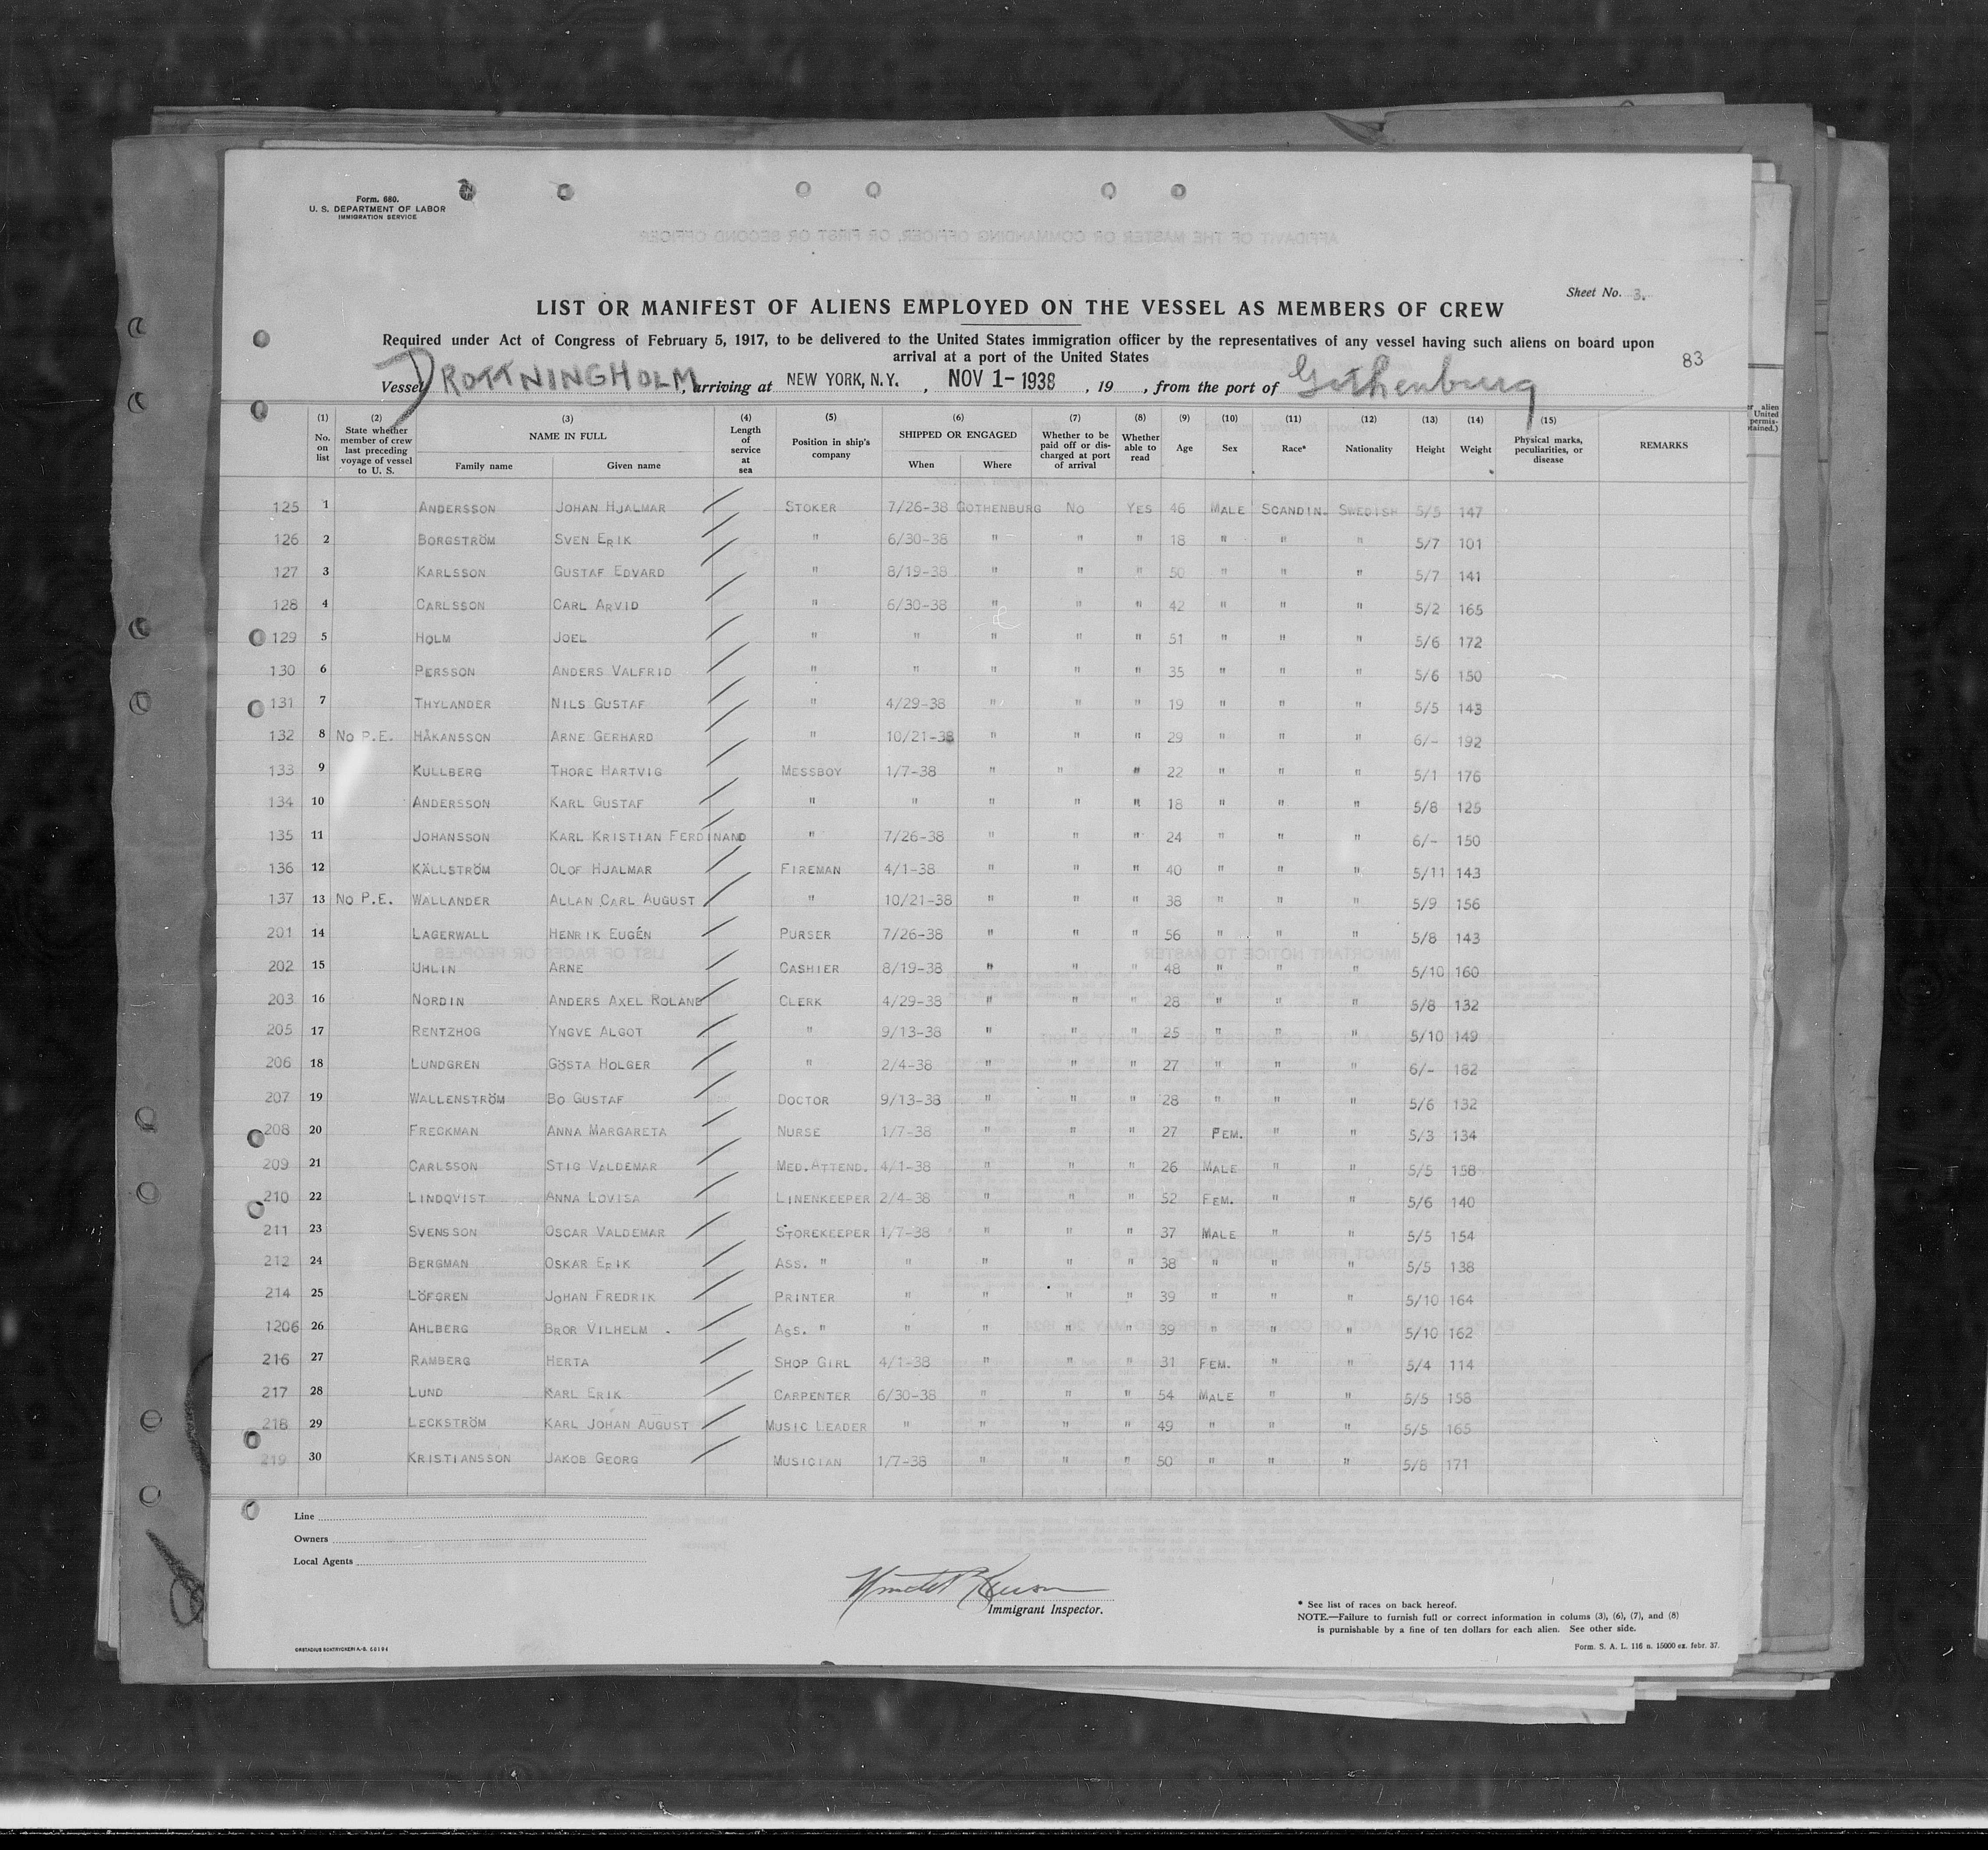 Form. 680.
U. S. DEPARTMENT OF LABOR
IMMIGRATION SERVICE
Sheet No. 3.
LIST OR MANIFEST OF ALIENS EMPLOYED ON THE VESSEL AS MEMBERS OF CREW
Required under Act of Congress of February 5, 1917, to be delivered to the United States immigration officer by the representatives of any vessel having such aliens on board upon
arrival at a port of the United States
83
Vessel DROTTNINGHOLM, arriving at NEW YORK, N.Y., NOV 1- 1938, 19, from the port of Gothenburg
(1) No. on list (2) State whether member of crew last preceding voyage of vessel to U. S. (3) NAME IN FULL Family name Given name (4) Length of service at sea (5) Position in ship's company (6) SHIPPED OR ENGAGED When Where (7) Whether to be paid off or discharged at port of arrival (8) Whether able to read (9) Age (10) Sex (11) Race* (12) Nationality (13) Height (14) Weight (15) Physical marks, peculiarities, or disease REMARKS
125 1 ANDERSSON JOHAN HJALMAR STOKER 7/26-38 GOTHENBURG NO YES 46 MALE SCANDIN. SWEDISH 5/5 147
126 2 BORGSTRÖM SVEN ERIK " 6/30-38 " " " 18 " " " 5/7 101
127 3 KARLSSON GUSTAF EDVARD " 8/19-38 " " " 50 " " " 5/7 141
128 4 CARLSSON CARL ARVID " 6/30-38 " " " 42 " " " 5/2 165
129 5 HOLM JOEL " " " " " 51 " " " 5/6 172
130 6 PERSSON ANDERS VALFRID " " " " " 35 " " " 5/6 150
131 7 THYLANDER NILS GUSTAF " 4/29-38 " " " 19 " " " 5/5 143
132 8 NO P.E. HÅKANSSON ARNE GERHARD " 10/21-38 " " " 29 " " " 6/- 192
133 9 KULLBERG THORE HARTVIG MESSBOY 1/7-38 " " " 22 " " " 5/1 176
134 10 ANDERSSON KARL GUSTAF " " " " " 18 " " " 5/8 125
135 11 JOHANSSON KARL KRISTIAN FERDINAND " 7/26-38 " " " 24 " " " 6/- 150
136 12 KÄLLSTRÖM OLOF HJALMAR FIREMAN 4/1-38 " " " 40 " " " 5/11 143
137 13 NO P.E. WALLANDER ALLAN CARL AUGUST " 10/21-38 " " " 38 " " " 5/9 156
201 14 LAGERWALL HENRIK EUGÉN PURSER 7/26-38 " " " 56 " " " 5/8 143
202 15 UHLIN ARNE CASHIER 8/19-38 " " " 48 " " " 5/10 160
203 16 NORDIN ANDERS AXEL ROLAND CLERK 4/29-38 " " " 28 " " " 5/8 132
205 17 RENTZHOG YNGVE ALGOT " 9/13-38 " " " 25 " " " 5/10 149
206 18 LUNDGREN GÖSTA HOLGER " 2/4-38 " " " 27 " " " 6/- 182
207 19 WALLENSTRÖM BO GUSTAF DOCTOR 9/13-38 " " " 28 " " " 5/6 132
208 20 FRECKMAN ANNA MARGARETA NURSE 1/7-38 " " " 27 FEM. " " 5/3 134
209 21 CARLSSON STIG VALDEMAR MED.ATTEND. 4/1-38 " " " 26 MALE " " 5/5 158
210 22 LINDQVIST ANNA LOVISA LINENKEEPER 2/4-38 " " " 52 FEM. " " 5/6 140
211 23 SVENSSON OSCAR VALDEMAR STOREKEEPER 1/7-38 " " " 37 MALE " " 5/5 154
212 24 BERGMAN OSKAR ERIK ASS. " " " " " 38 " " " 5/5 138
214 25 LÖFGREN JOHAN FREDRIK PRINTER " " " " 39 " " " 5/10 164
1206 26 AHLBERG BROR VILHELM . ASS. " " " " " 39 " " " 5/10 162
216 27 RAMBERG HERTA SHOP GIRL 4/1-38 " " " 31 FEM. " " 5/4 114
217 28 LUND KARL ERIK CARPENTER 6/30-38 " " " 54 MALE " " 5/5 158
218 29 LECKSTRÖM KARL JOHAN AUGUST MUSIC LEADER " " " " 49 " " " 5/5 165
219 30 KRISTIANSSON JAKOB GEORG MUSICIAN 1/7-38 " " " 50 " " " 5/8 171
Line
Owners
Local Agents
Immigrant Inspector.
* See list of races on back hereof.
NOTE.—Failure to furnish full or correct information in colums (3), (6), (7), and (8)
is punishable by a fine of ten dollars for each alien. See other side.
Form. S. A. L. 116 n. 15000 ex. febr. 37.